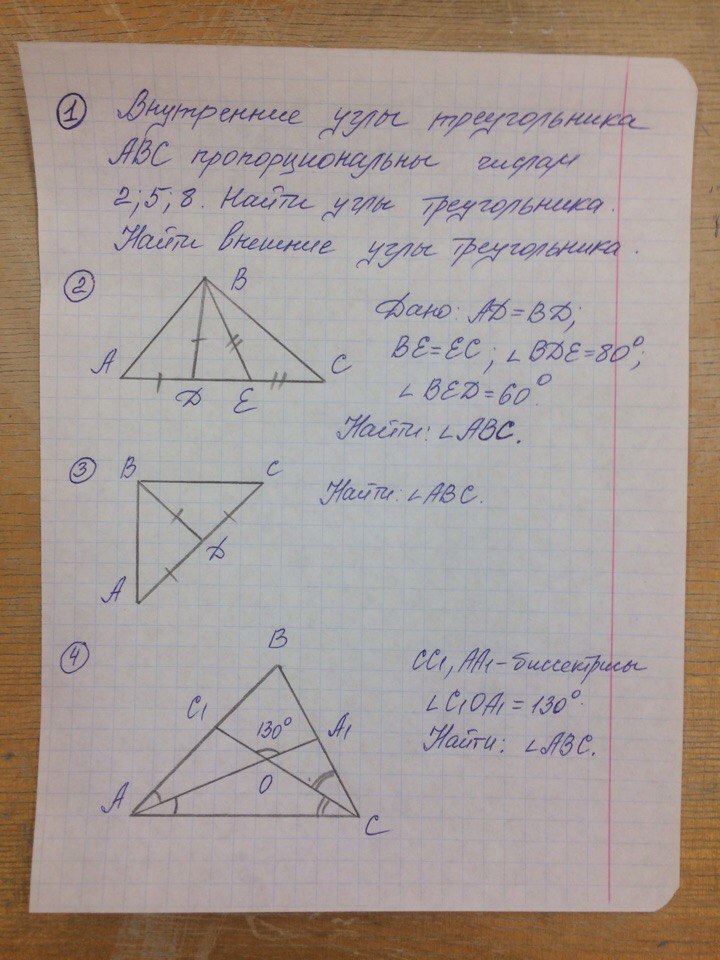 1 Внутренние углы треугольника
ABC пропорциональны числам
2; 5; 8. Найти углы треугольника.
Найти внешние углы треугольника.
2
B
A
C
D
E
Дано: AD = BD;
BE = EC; ∠BDE = 80°;
∠BED = 60°.
Найти: ∠ABC.
3
B
C
D
A
Найти: ∠ABC.
4
B
C1
130°
A1
O
A
C
CC1, AA1 - биссектрисы
∠C1OA1 = 130°.
Найти: ∠ABC.